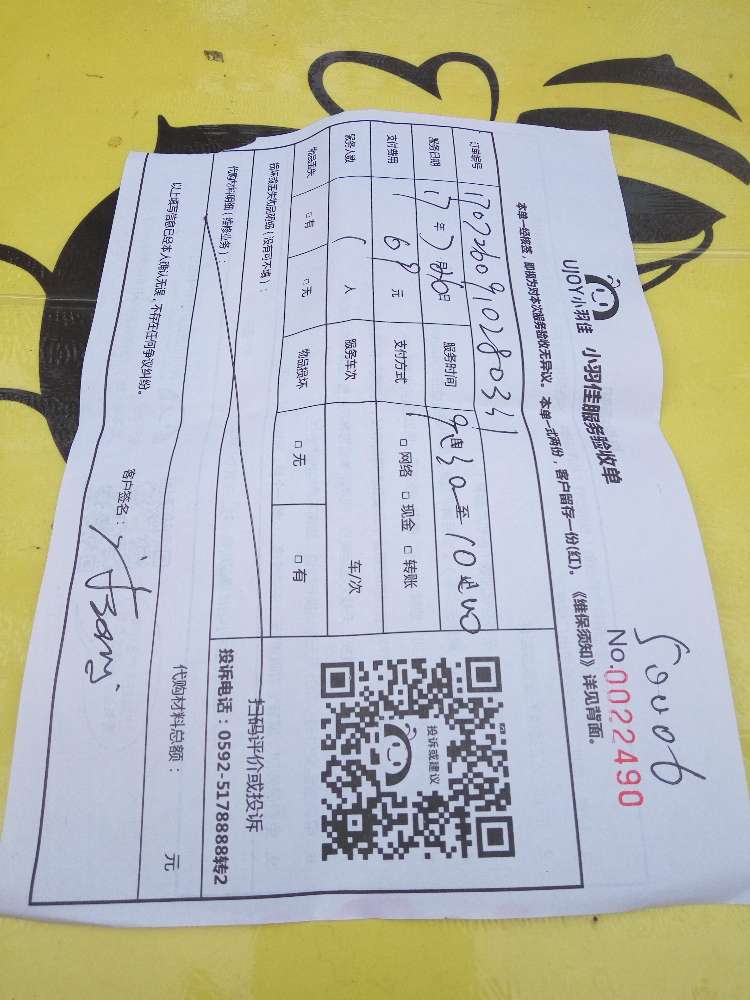 50006
UJOY小羽佳 小羽佳服务验收单
No.0022490
本单一经接签，即视为对本次服务验收无异议。本单一式两份，客户留存一份(红)。《维保须知》详见背面。
订单编号 1707260910280341
服务日期 17年7月26日 服务时间 9时30至10时00
支付费用 69元 支付方式 □网络 □现金 □转账
服务人数 1人 服务车次 车/次
物品丢失 □有 □无 物品损坏 □无 □有
损坏或丢失物品明细（没有可不填）：
投诉或建议
扫码评价或投诉
投诉电话：0592-5178888转2
代购材料明细（维修业务）：
代购材料总额： 元
以上填写信息已经本人确认无误，不存在任何争议纠纷。
客户签名：